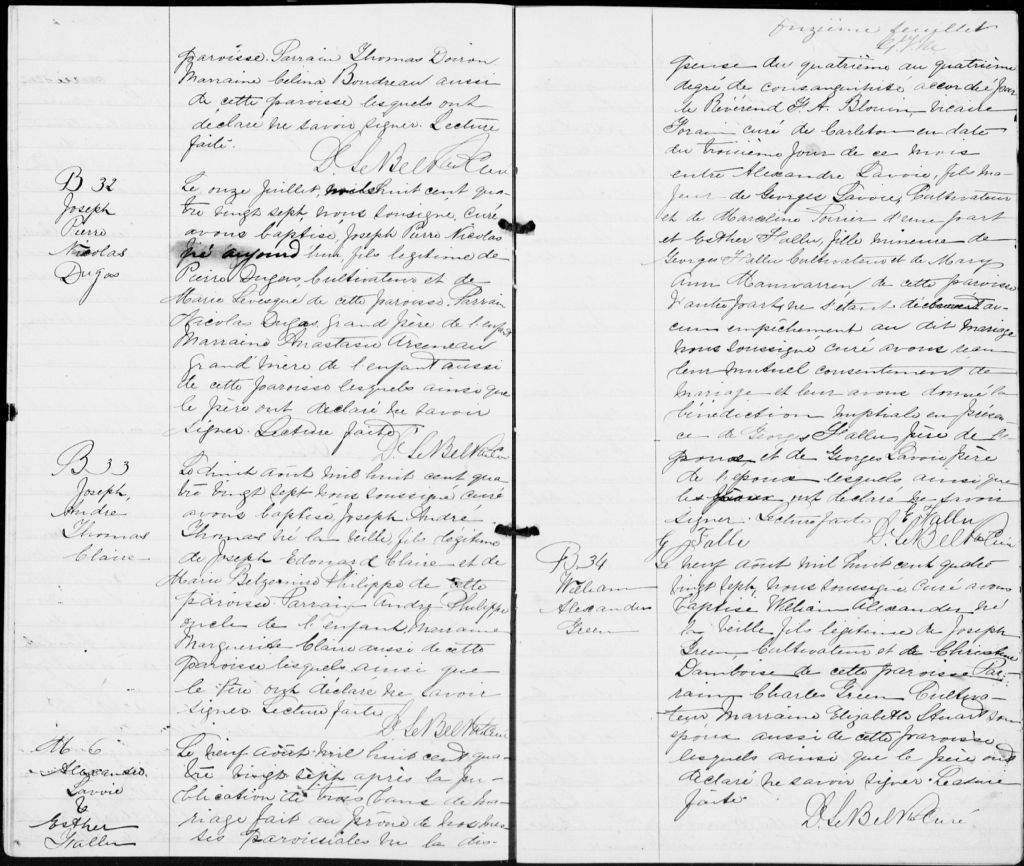 paroisse. Parrain Thomas Doiron
Marraine Celina Boudreau aussi
de cette paroisse lesquels ont
déclaré ne savoir signer. Lecture
faite.
D. LeBel Ptre Curé
B 32
Joseph
Pierre
Nicolas
Dugas
Le onze Juillet, mil huit cent, qua-
tre vingt sept, nous soussigné, curé
avons baptisé, Joseph Pierre Nicolas
né aujourd'hui, fils legitime de
Pierre Dugas Cultivateur et de
Marie Levesque de cette paroisse. Parrain
Nicolas Dugas, grand père de l'enfant
Marraine Anastasie Arseneau
grand'mère de l'enfant aussi
de cette paroisse lesquels ainsi que
le père ont déclaré ne savoir
signer. Lecture faite.
D. LeBel Ptre Curé
B 33
Joseph,
André
Thomas
Claire
Le huit août mil huit cent qua-
tre vingt sept nous soussigné curé
avons baptisé Joseph André
Thomas né la veille, fils légitime
de Joseph Edouard Claire et de
Marie Philippe de cette
paroisse. Parrain André Philippe
oncle de l'enfant, Marraine
Marguerite Claire aussi de cette
paroisse lesquels ainsi que
le Père ont déclaré ne savoir
signer Lecture faite,
D. LeBel Ptre Curé
M 6
Alexandre
Lavoie
&
Esther
Hallu
Le neuf août mil huit cent qua-
tre vingt sept après la pu-
blication de trois bans de ma-
riage fait au prône de nos mes-
ses paroissiales vu la dis-
onzième feuillet
pense du quatrième au quatrième
degré de consanguinité accordée par
le Révérend J. A. Blouin, vicaire
Forain curé de Carleton en date
du troisième jour de ce mois
entre Alexandre Lavoie, fils ma-
jeur de Georges Lavoie, Cultivateur
et de Marceline Poirier d'une part
et Esther Hallu, fille mineure de
Georges Hallu Cultivateur et de Mary
Ann de cette paroisse
d'autre part, ne s'étant découvert au-
cun empêchement au dit mariage
nous soussigné curé avons reçu
leur mutuel consentement de
mariage et leur avons donné la
bénédiction nuptiale en présen-
ce de Georges Hallu, père de l'é-
pouse et de Georges Lavoie père
de l'époux lesquels ainsi que
les époux ont déclaré ne savoir
signer. Lecture faite E Hallu
G Hallu D. LeBel Ptre Curé
B 34
William
Alexander
Green
Le neuf août mil huit cent quatre
vingt sept, nous soussigné curé avons
baptisé William Alexander né
la veille, fils légitime de Joseph
Green, Cultivateur et de Christine
Damboise de cette paroisse Par-
rain Charles Green Cultiva-
teur, Marraine Elizabeth Stuart son
épouse aussi de cette paroisse
lesquels ainsi que le père ont
déclaré ne savoir signer. Lecture
faite.
D. LeBel Ptre Curé